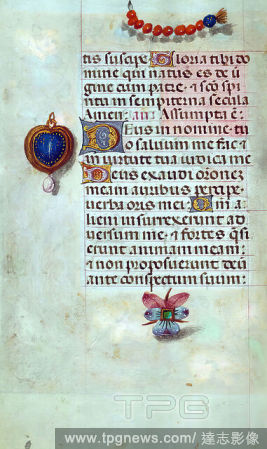 tis suscipe Gloria tibi do
mine qui natus es de v̄
gine cum patre ⁊ sc̄o spi
ritu in sempiterna secula
Amen: an̄: Assumpta ē:
Deus in nomine tu
o saluum me fac ⁊
in virtute tua iudica me
Deus exaudi oronez
meam auribus percipe
verba oris mei: Qm̄ a
lieni insurrexerunt ad
versum me ⁊ fortes q̄si
erunt animam meam:
⁊ non proposuerunt deū
ante conspectum suum:
TPG
www.tpgnews.com／達志影像